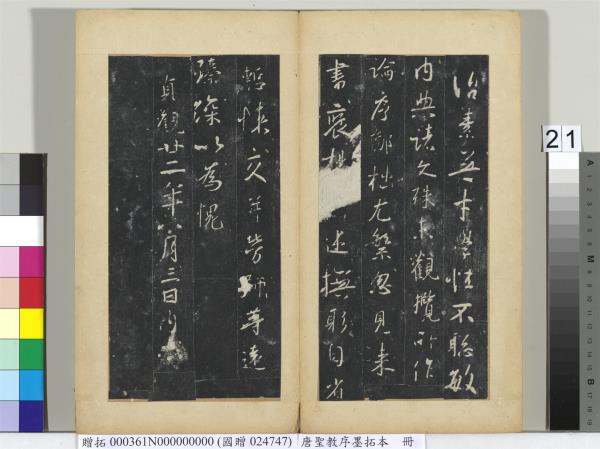 治素無才學性不聰敏
內典諸文殊未觀攬所作
論序鄙拙尤繁忽見來
書褒揚述撫躬自省
慙悚交并勞師等遠
臻深以為愧
貞觀廿二年八月三日內
21
A
M
B
贈拓 000361N000000000 (國贈 024747) 唐聖教序墨拓本 冊